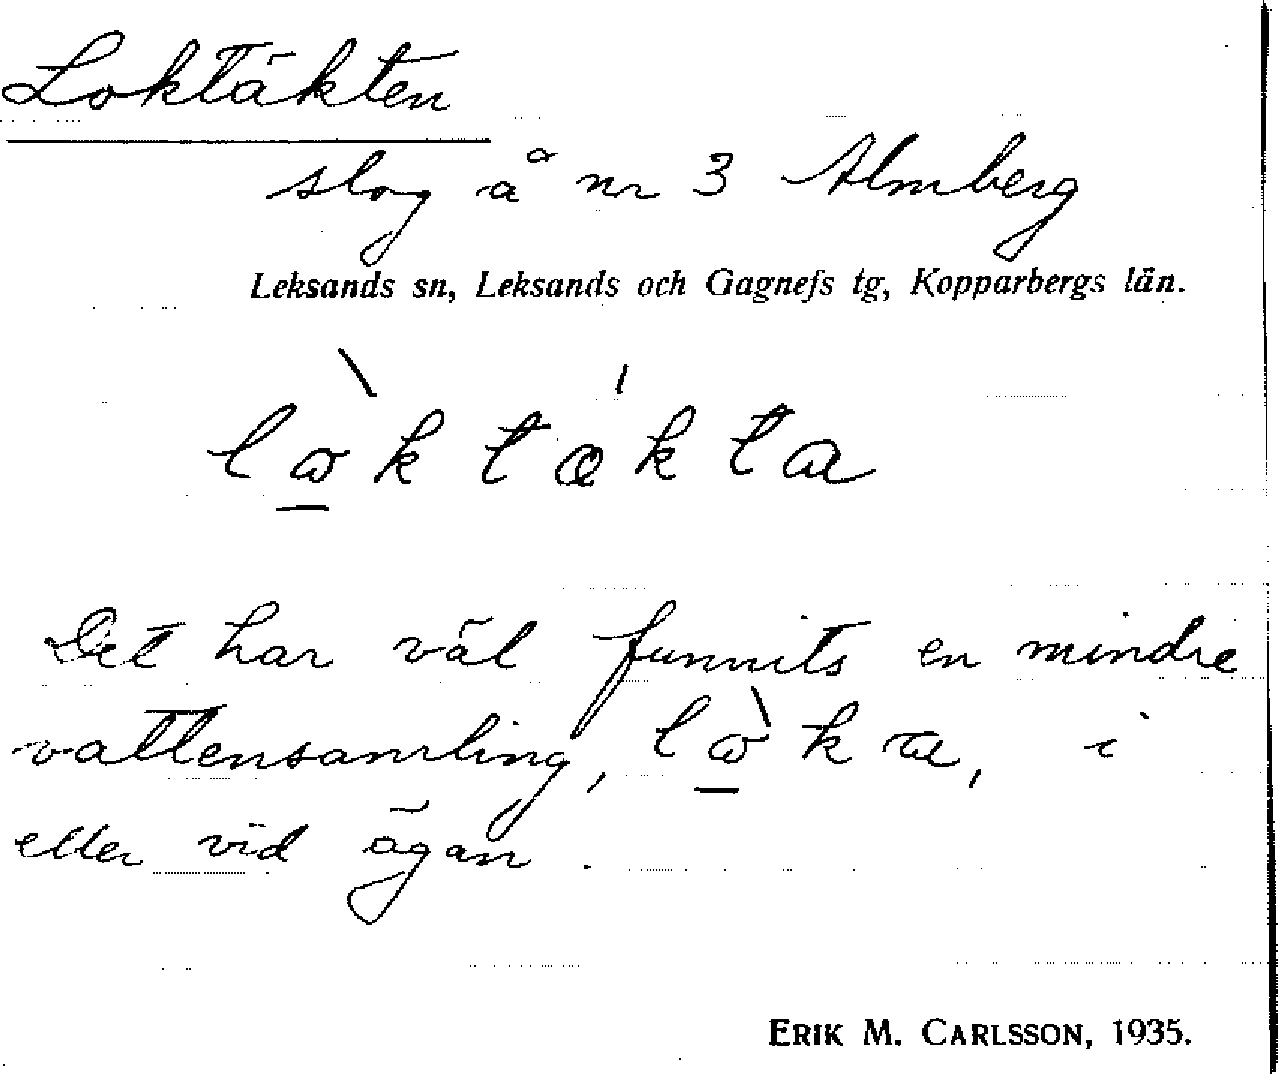 Loktäkten
slog å nr 3 Almberg
Leksands sn, Leksands och Gagnefs tg, Kopparbergs län.
lὼ̱ktǽkta
Det har väl funnits en mindre
vattensamling, lὼ̱ka, i
eller vid ägan.
ERIK M. CARLSSON, 1935.